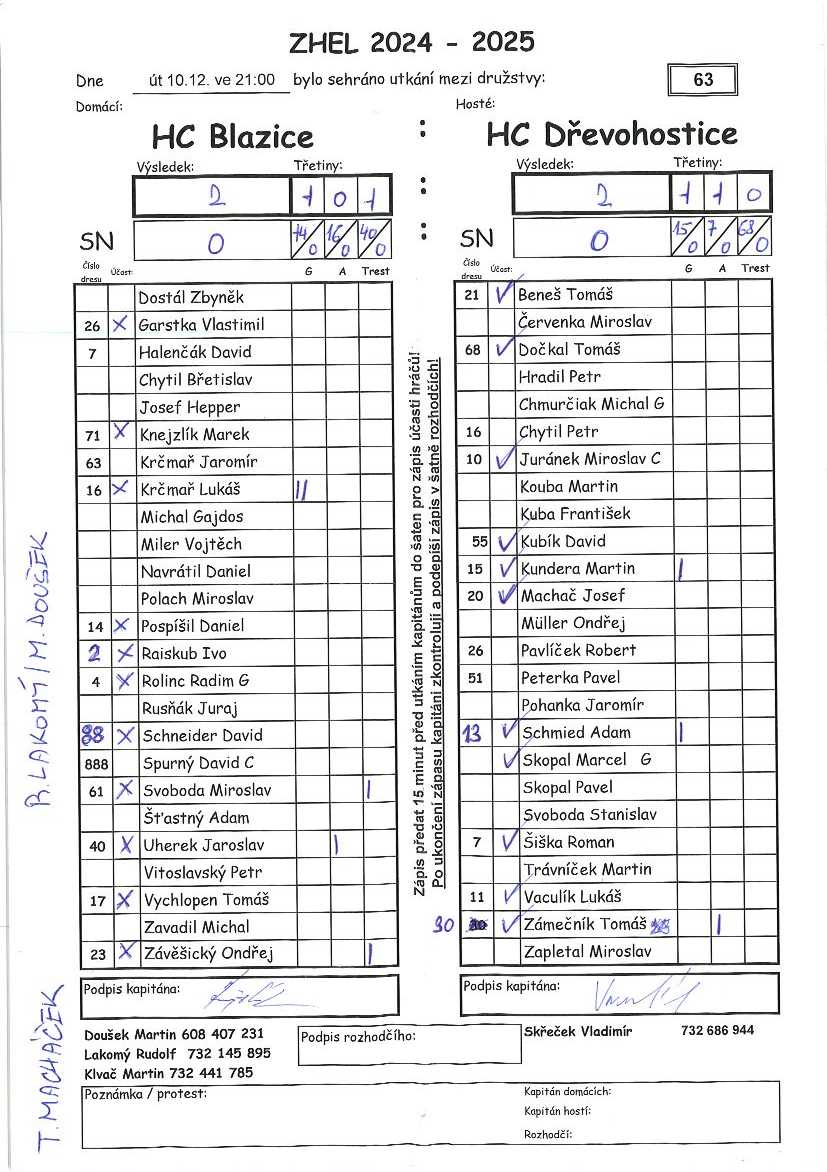 ZHEL 2024 - 2025
Dne út 10.12. ve 21:00 bylo sehráno utkání mezi družstvy: 63
Domácí: Hosté:
HC Blazice : HC Dřevohostice
Výsledek: Třetiny: Výsledek: Třetiny:
2 1 0 1 : 2 1 1 0
SN 0 14/0 16/0 40/0 : SN 0 15/0 7/0 68/0
Číslo dresu Účast: G A Trest Číslo dresu Účast: G A Trest
Dostál Zbyněk
26 X Garstka Vlastimil
7 Halenčák David
Chytil Břetislav
Josef Hepper
71 X Knejzlík Marek
63 Krčmař Jaromír
16 X Krčmař Lukáš ||
Michal Gajdos
Miler Vojtěch
Navrátil Daniel
Polach Miroslav
14 X Pospíšil Daniel
2 X Raiskub Ivo
4 X Rolinc Radim G
Rusňák Juraj
88 X Schneider David
888 Spurný David C
61 X Svoboda Miroslav |
Šťastný Adam
40 X Uherek Jaroslav |
Vitoslavský Petr
17 X Vychlopen Tomáš
Zavadil Michal
23 X Závěšický Ondřej |
Zápis předat 15 minut před utkáním kapitánům do šaten pro zápis účasti hráčů!
Po ukončení zápasu kapitáni zkontrolují a podepíší zápis v šatně rozhodčích!
21 ✓ Beneš Tomáš
Červenka Miroslav
68 ✓ Dočkal Tomáš
Hradil Petr
Chmurčiak Michal G
16 Chytil Petr
10 ✓ Juránek Miroslav C
Kouba Martin
Kuba František
55 ✓ Kubík David
15 ✓ Kundera Martin |
20 ✓ Machač Josef
Müller Ondřej
26 Pavlíček Robert
51 Peterka Pavel
Pohanka Jaromír
13 ✓ Schmied Adam |
✓ Skopal Marcel G
Skopal Pavel
Svoboda Stanislav
7 ✓ Šiška Roman
Trávníček Martin
11 ✓ Vaculík Lukáš
30 ✓ Zámečník Tomáš |
Zapletal Miroslav
R. LAKOMÝ / M. DOUŠEK
T. MACHÁČEK
Podpis kapitána: Podpis kapitána:
Doušek Martin 608 407 231
Lakomý Rudolf 732 145 895
Klvač Martin 732 441 785
Podpis rozhodčího:
Skřeček Vladimír 732 686 944
Poznámka / protest:
Kapitán domácích:
Kapitán hostí:
Rozhodčí: